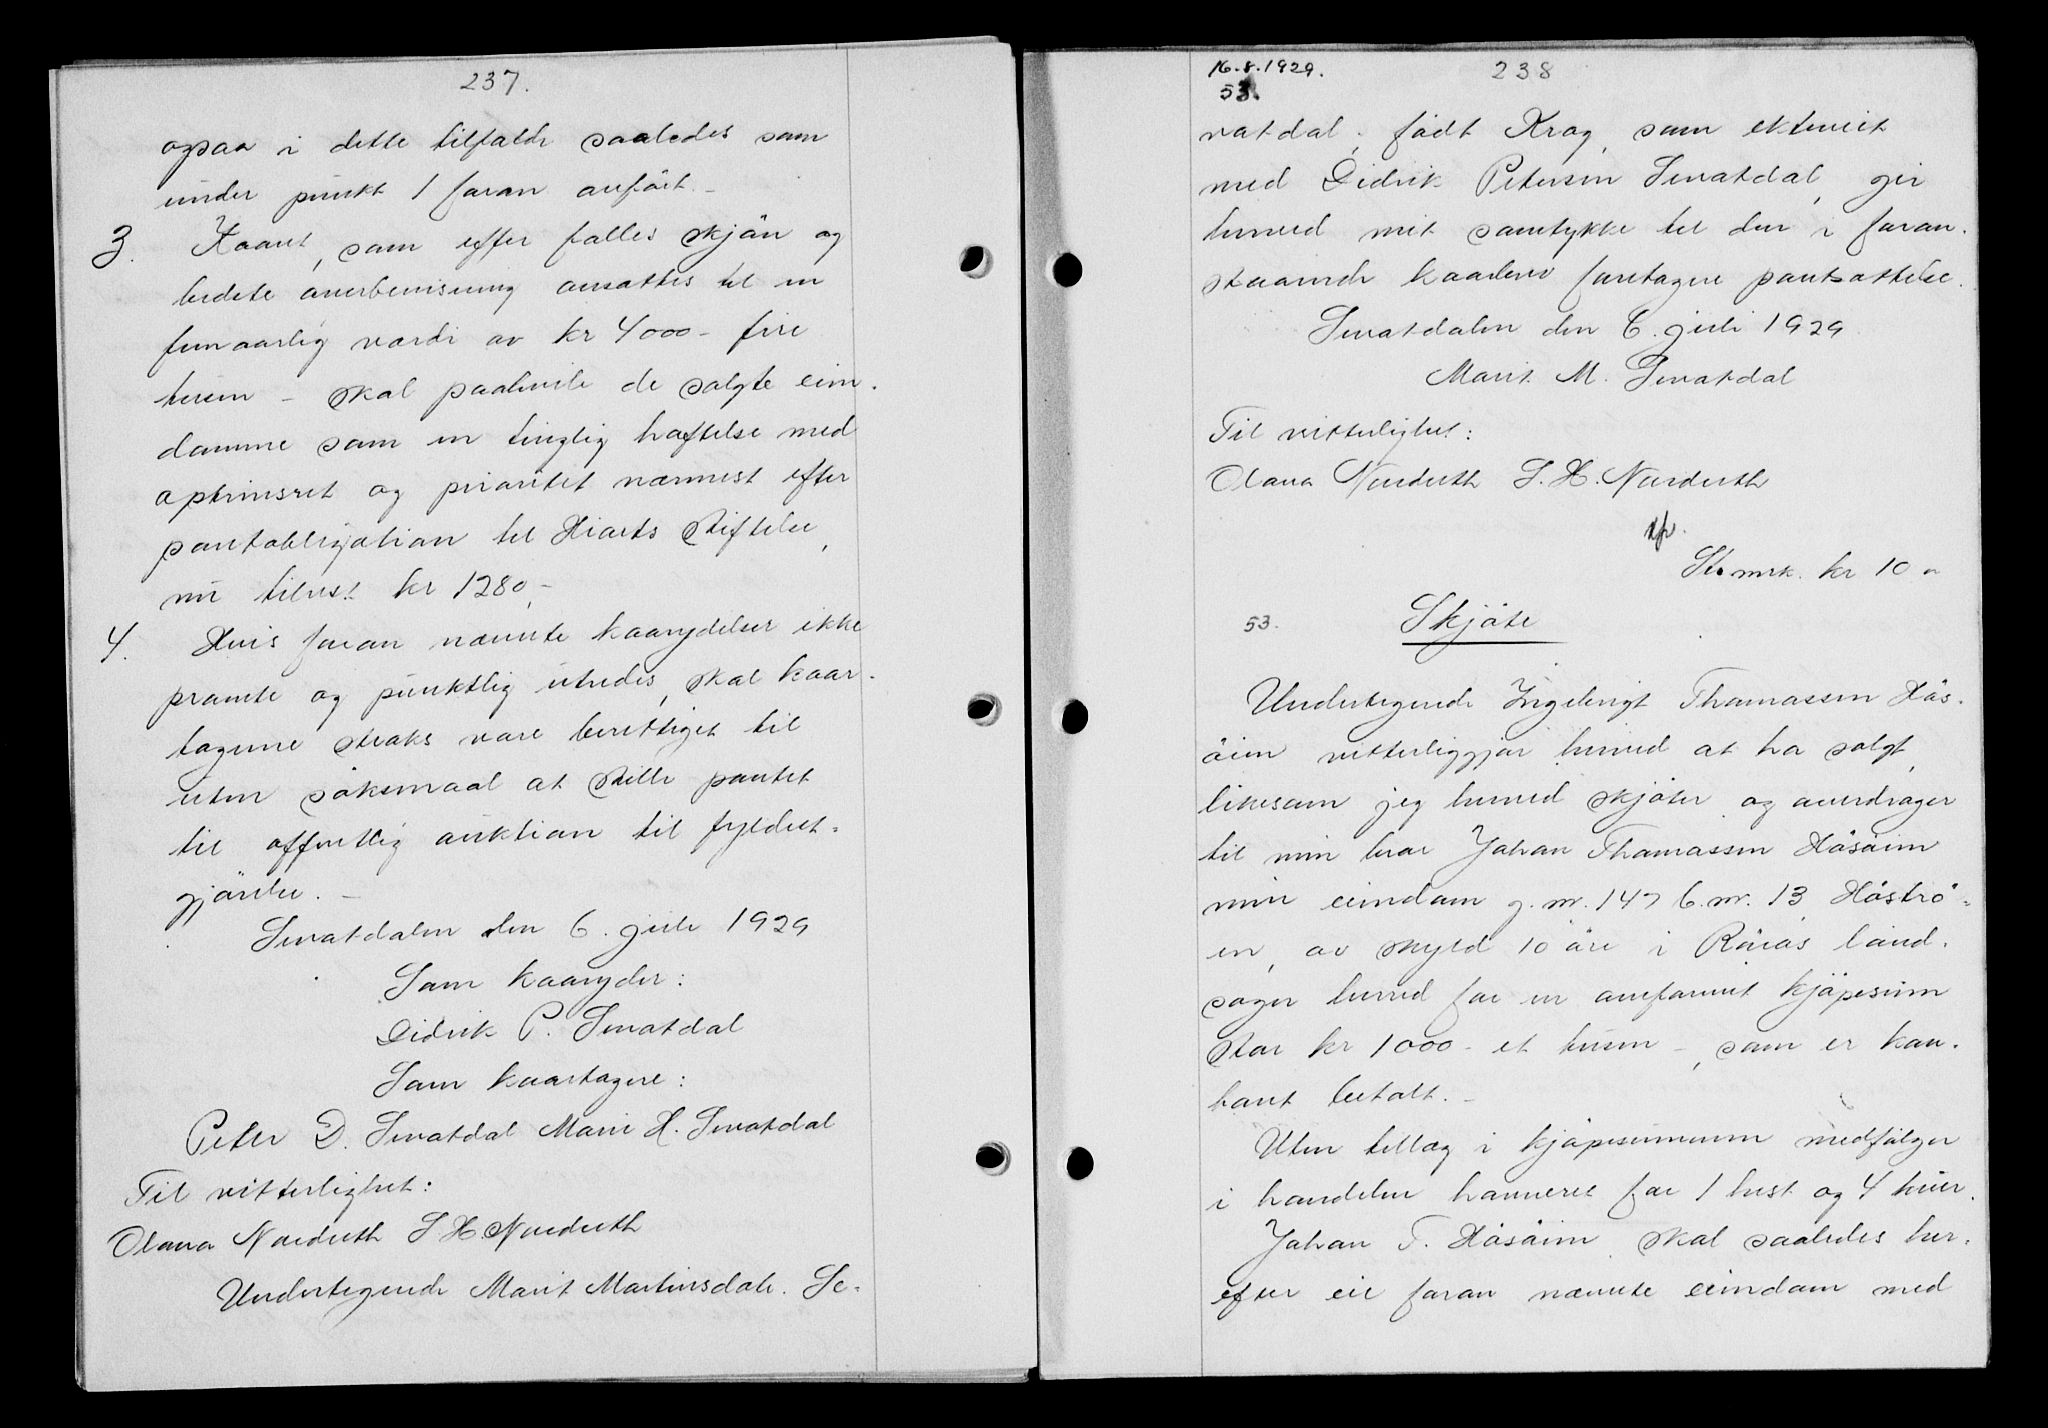 237.
ogsaa i dette tilfælde saaledes som
under punkt 1 foran anført. -
3. Kaaret, som efter fælles skjön og
bedste overbevisning ansættes til en
femaarlig værdi av kr 4000 - fire
tusen - skal paahvile de solgte eien-
domme som en tinglig hæftelse med
optrinsret og prioritet nærmest efter
pantobligation til Hiorts Stiftelse,
nu tilrest kr 1280,-
4. Hvis foran nævnte kaarydelser ikke
promte og punktlig utredes, skal kaar-
tagerne straks være berettiget til
uten söksmaal at stille pantet
til offentlig auktion til fyldest-
gjörelse. -
Sevatdalen den 6. juli 1929
Som kaaryder:
Didrik P. Sevatdal
Som kaartagere:
Peter D. Sevatdal Marit H. Sevatdal
Til vitterlighet:
Olava Nordseth S. H. Nordseth
Undertegnede Marit Martinsdatr. Se-
16.8.1929.
53.
238
vatdal, født Krog, som ektevie
med Didrik Petersen Sevatdal, gir
herved mit samtykke til den i foran-
staaende kaarbrev foretagne pantsættelse.
Sevatdalen den 6. juli 1929
Marit M. Sevatdal
Til vitterlighet:
Olava Nordseth S. H. Nordseth
St. mrk. kr 10
53. Skjöte
Undertegnede Ingebrigt Thomassen Hås-
öien vitterliggjör herved at ha solgt,
likesom jeg herved skjöter og overdrager
til min bror Johan Thomassen Håsöien
min eiendom g. nr. 147 b. nr. 13 Håströ-
en, av skyld 10 öre i Röros land-
sogn herred for en omforenet kjöpesum
stor kr 1000 - et tusen -, som er kon-
tant betalt. -
Uten tillæg i kjöpesummen medfølger
i handelen havneret for 1 hest og 4 kuer.
Johan T. Håsöien skal saaledes her-
efter eie foran nævnte eiendom med